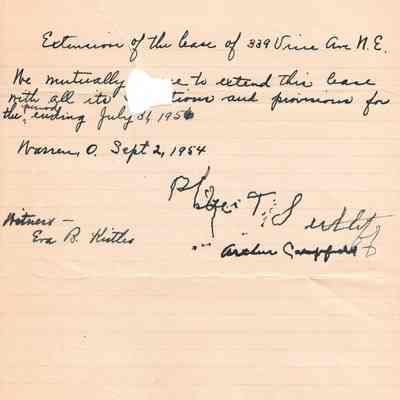 Extension of the lease of 339 Vine Ave N.E.
We mutually to extend this lease
with all its and provisions for
the period ending July 31, 1956
Warren, O. Sept 2, 1954
Witness —
Eva B.
Arthur